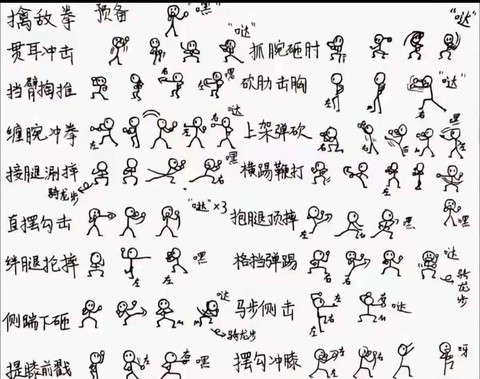 擒敌拳 预备 "嘿" "哒"
贯耳冲击 "哒" 抓腕砸肘
挡臂掏推 右 右 嘿 砍肋击胸 右 左 右 "哒"
缠腕冲拳 左 左 右 哒 上架弹砍 右 右 嘿
接腿涮摔 骑龙步 右 嘿 横踢鞭打 左 左
直摆勾击 "哒"×3 抱腿顶摔 左 嘿 嘿
绊腿抡摔 左 左 嘿 格挡弹踢 右 右 哒 骑龙步
侧踹下砸 哒 骑龙步 马步侧击 左 左 右 哒
提膝前戳 左 右 嘿 摆勾冲膝 左 右 呀